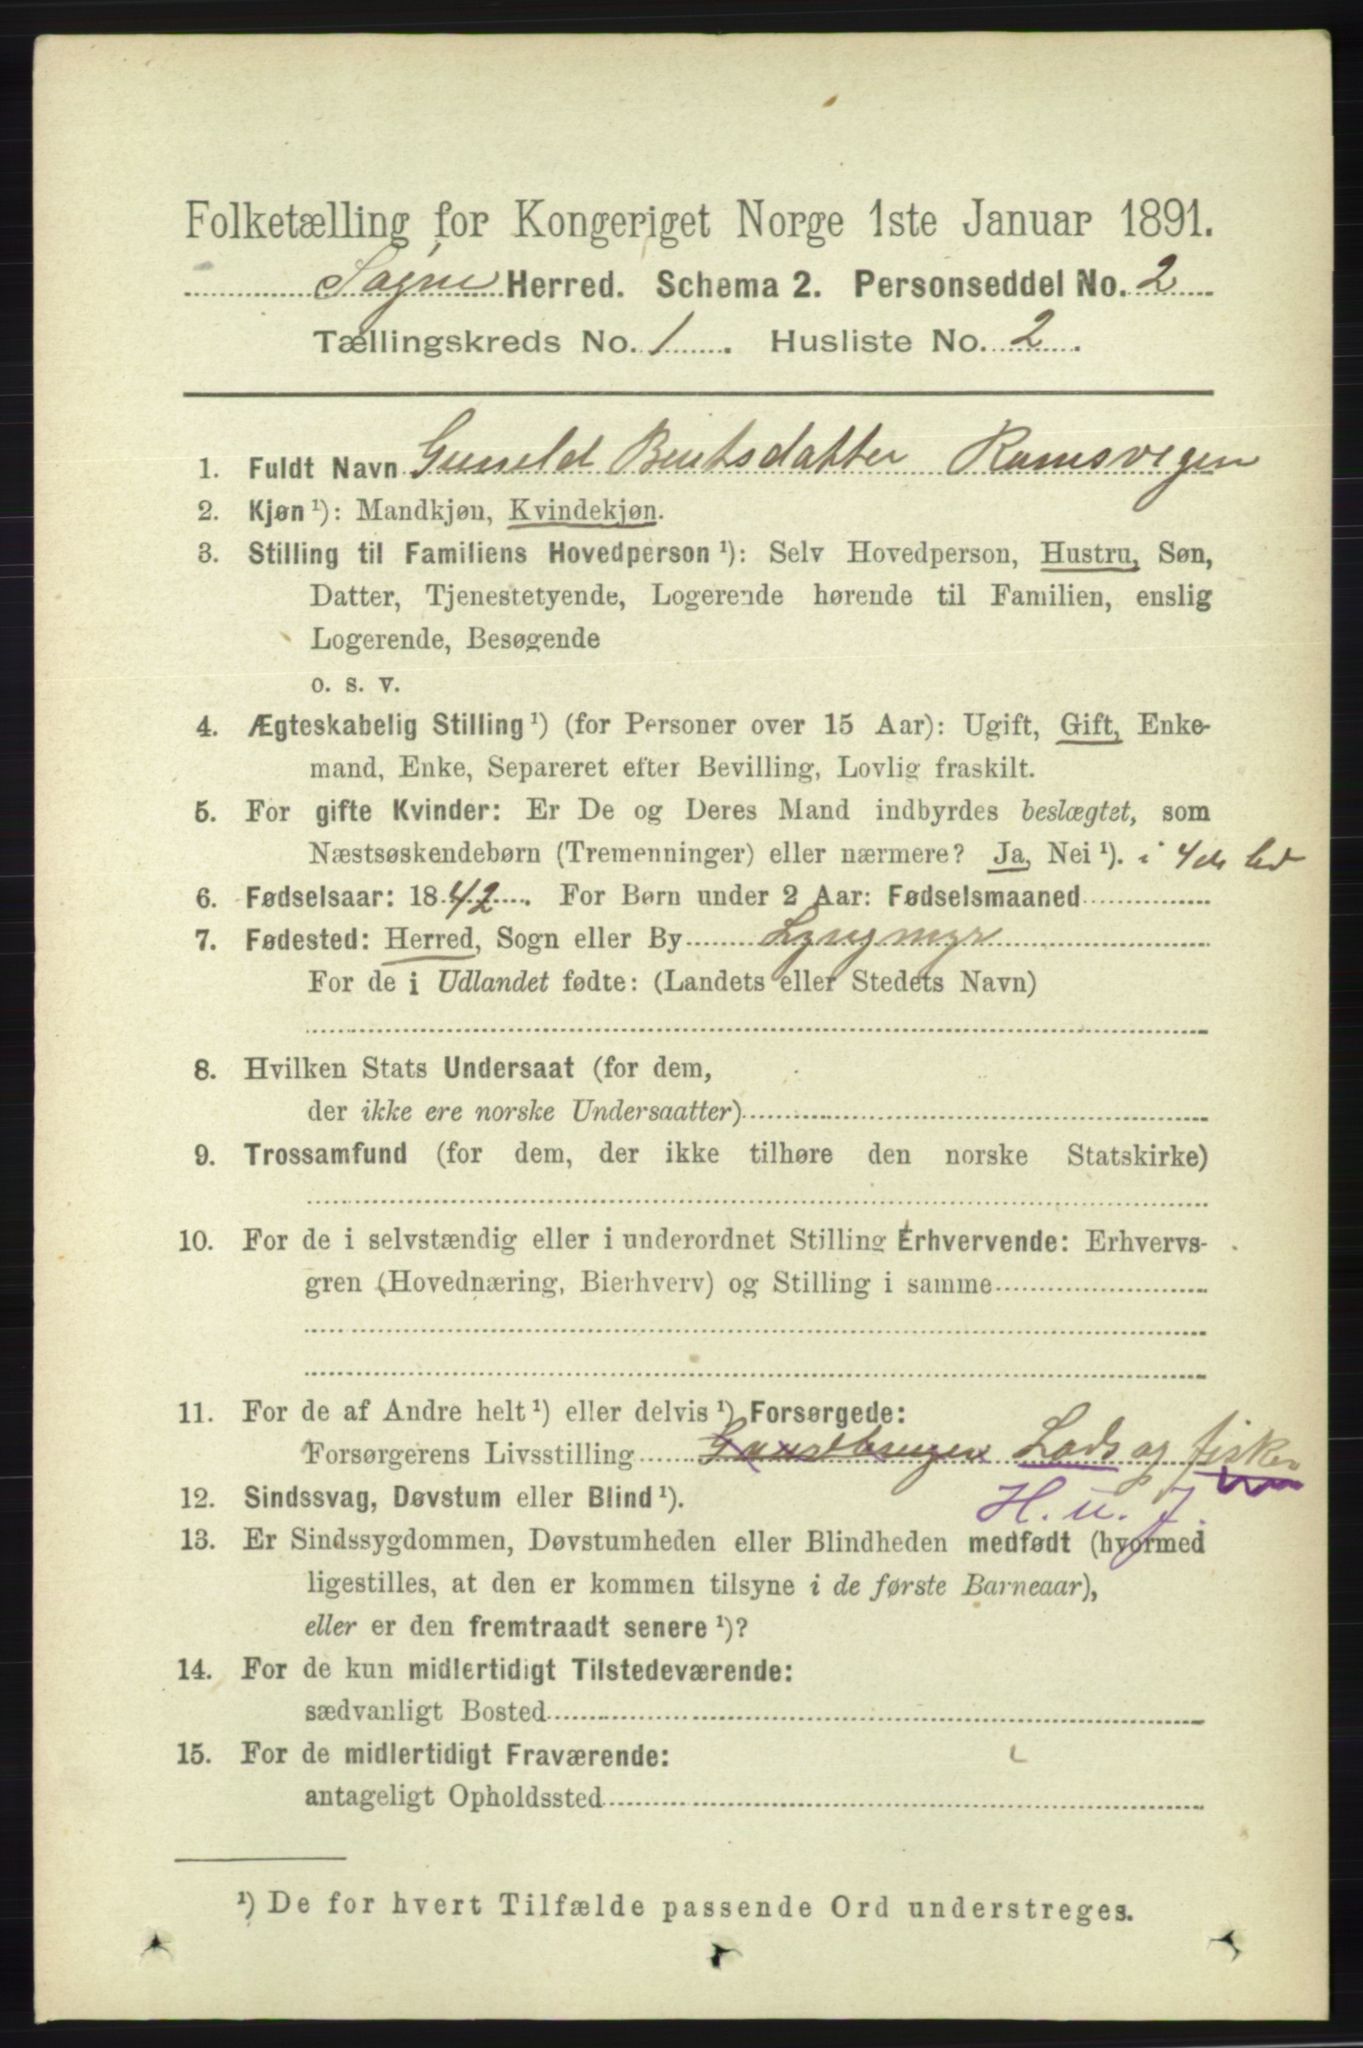 Folketælling for Kongeriget Norge 1ste Januar 1891.
Søgne Herred. Schema 2. Personseddel No. 2
Tællingskreds No. 1. Husliste No. 2.
1. Fuldt Navn Gunild Bentsdatter Ramsvigen
2. Kjøn ¹): Mandkjøn, Kvindekjøn.
3. Stilling til Familiens Hovedperson ¹): Selv Hovedperson, Hustru, Søn,
Datter, Tjenestetyende, Logerende hørende til Familien, enslig
Logerende, Besøgende
o. s. v.
4. Ægteskabelig Stilling ¹) (for Personer over 15 Aar): Ugift, Gift, Enke-
mand, Enke, Separeret efter Bevilling, Lovlig fraskilt.
5. For gifte Kvinder: Er De og Deres Mand indbyrdes beslægtet, som
Næstsøskendebørn (Tremenninger) eller nærmere? Ja, Nei ¹). i 4de led
6. Fødselsaar: 1842. For Børn under 2 Aar: Fødselsmaaned
7. Fødested: Herred, Sogn eller By Lyngmyr
For de i Udlandet fødte: (Landets eller Stedets Navn)
8. Hvilken Stats Undersaat (for dem,
der ikke ere norske Undersaatter)
9. Trossamfund (for dem, der ikke tilhøre den norske Statskirke)
10. For de i selvstændig eller i underordnet Stilling Erhvervende: Erhvervs-
gren (Hovednæring, Bierhverv) og Stilling i samme
11. For de af Andre helt ¹) eller delvis ¹) Forsørgede:
Forsørgerens Livsstilling Gaardbruger Lods og fisker
12. Sindssvag, Døvstum eller Blind ¹). H. u. J.
13. Er Sindssygdommen, Døvstumheden eller Blindheden medfødt (hvormed
ligestilles, at den er kommen tilsyne i de første Barneaar),
eller er den fremtraadt senere ¹)?
14. For de kun midlertidigt Tilstedeværende:
sædvanligt Bosted
15. For de midlertidigt Fraværende:
antageligt Opholdssted
¹) De for hvert Tilfælde passende Ord understreges.